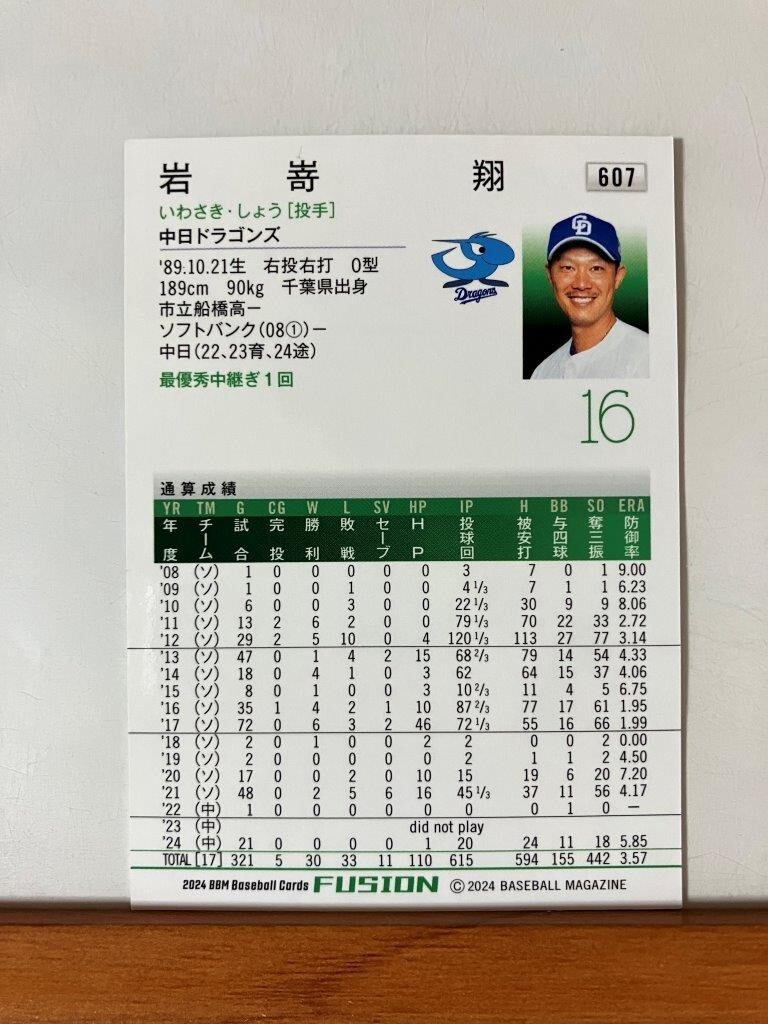 岩嵜 翔 607
いわさき・しょう[投手]
中日ドラゴンズ
'89.10.21生 右投右打 O型
189cm 90kg 千葉県出身
市立船橋高ー
ソフトバンク(08①)ー
中日(22、23育、24途)
最優秀中継ぎ1回
CD
Dragons
16
通算成績
YR TM G CG W L SV HP IP H BB SO ERA
年度 チーム 試合 完投 勝利 敗戦 セーブ HP 投球回 被安打 与四球 奪三振 防御率
'08 (ソ) 1 0 0 0 0 0 3 7 0 1 9.00
'09 (ソ) 1 0 0 1 0 0 4 1/3 7 1 1 6.23
'10 (ソ) 6 0 0 3 0 0 22 1/3 30 9 9 8.06
'11 (ソ) 13 2 6 2 0 0 79 1/3 70 22 33 2.72
'12 (ソ) 29 2 5 10 0 4 120 1/3 113 27 77 3.14
'13 (ソ) 47 0 1 4 2 15 68 2/3 79 14 54 4.33
'14 (ソ) 18 0 4 1 0 3 62 64 15 37 4.06
'15 (ソ) 8 0 1 0 0 3 10 2/3 11 4 5 6.75
'16 (ソ) 35 1 4 2 1 10 87 2/3 77 17 61 1.95
'17 (ソ) 72 0 6 3 2 46 72 1/3 55 16 66 1.99
'18 (ソ) 2 0 1 0 0 2 2 0 0 2 0.00
'19 (ソ) 2 0 0 0 0 0 2 1 1 2 4.50
'20 (ソ) 17 0 0 2 0 10 15 19 6 20 7.20
'21 (ソ) 48 0 2 5 6 16 45 1/3 37 11 56 4.17
'22 (中) 1 0 0 0 0 0 0 0 1 0 −
'23 (中) did not play
'24 (中) 21 0 0 0 0 1 20 24 11 18 5.85
TOTAL [17] 321 5 30 33 11 110 615 594 155 442 3.57
2024 BBM Baseball Cards FUSION © 2024 BASEBALL MAGAZINE